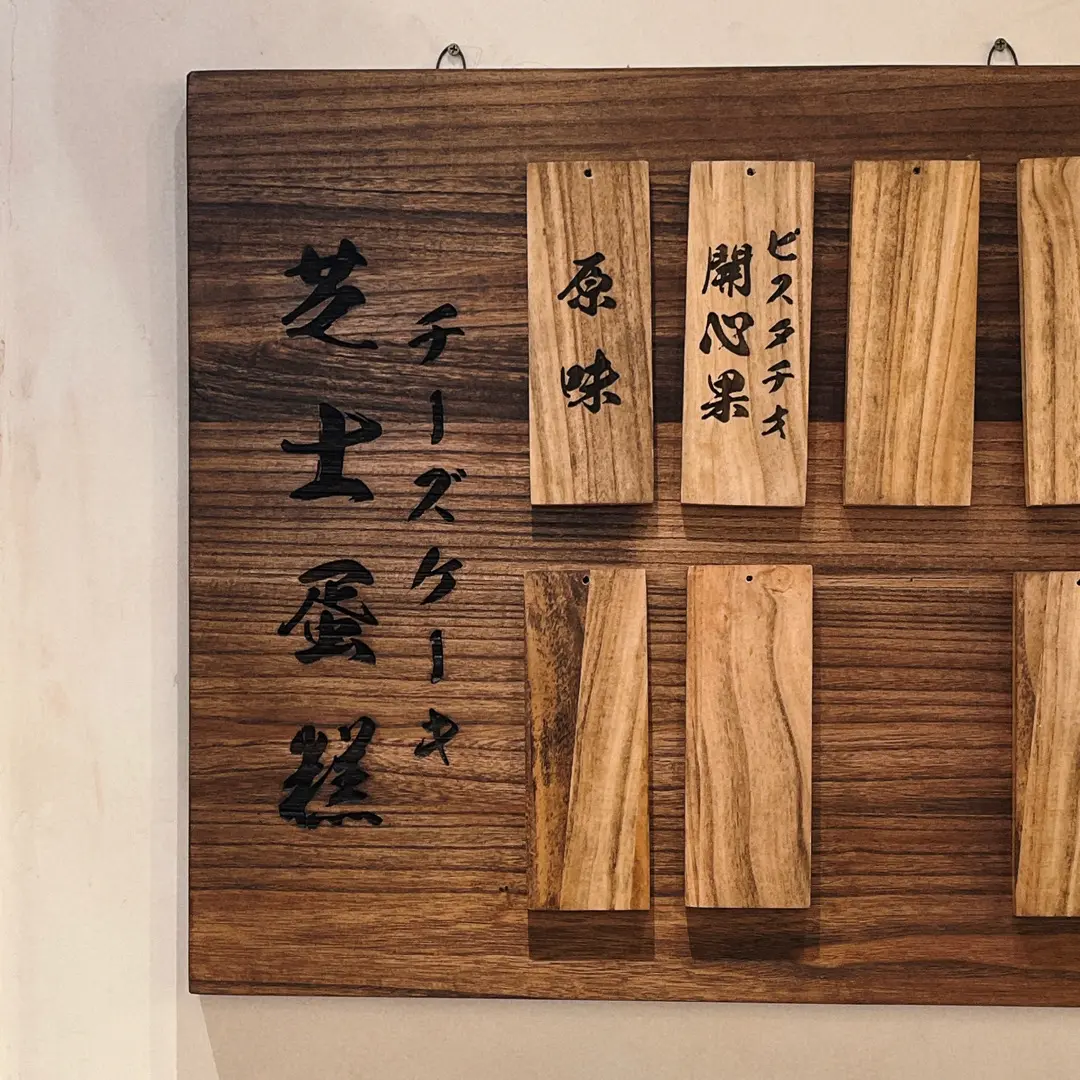 芝士蛋糕
チーズケーキ
原味
開心果
ピスタチオ